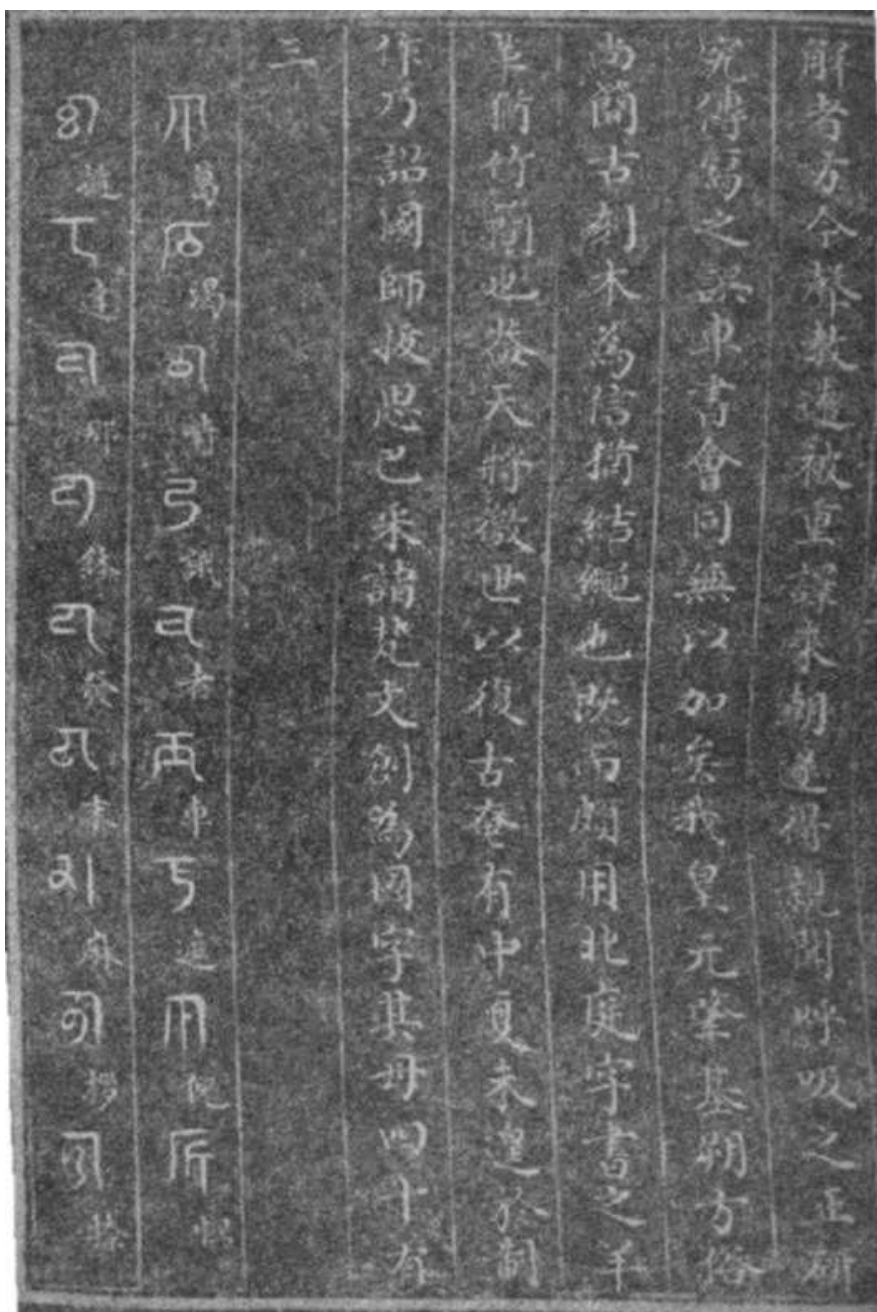 解者方今聲教遠被重譯來朝遂得親聞呼吸之正研
究傳寫之誤車書會同無以加矣我皇元肇基朔方俗
尚簡古刻木為信猶結繩也既而頗用北庭字書之羊
革猶竹簡也蓋天將徵世以復古奄有中夏未遑於制
作乃詔國師拔思巴采諸梵文創為國字其母四十有
三
ꡀ葛ꡁ渴ꡂꡃ誐ꡄ者ꡅ車ꡆ遮ꡇ倪ꡈ怛
ꡉ撻ꡊ達ꡋ那ꡌ鉢ꡍ發ꡎ末ꡏ麻ꡐ拶ꡑ